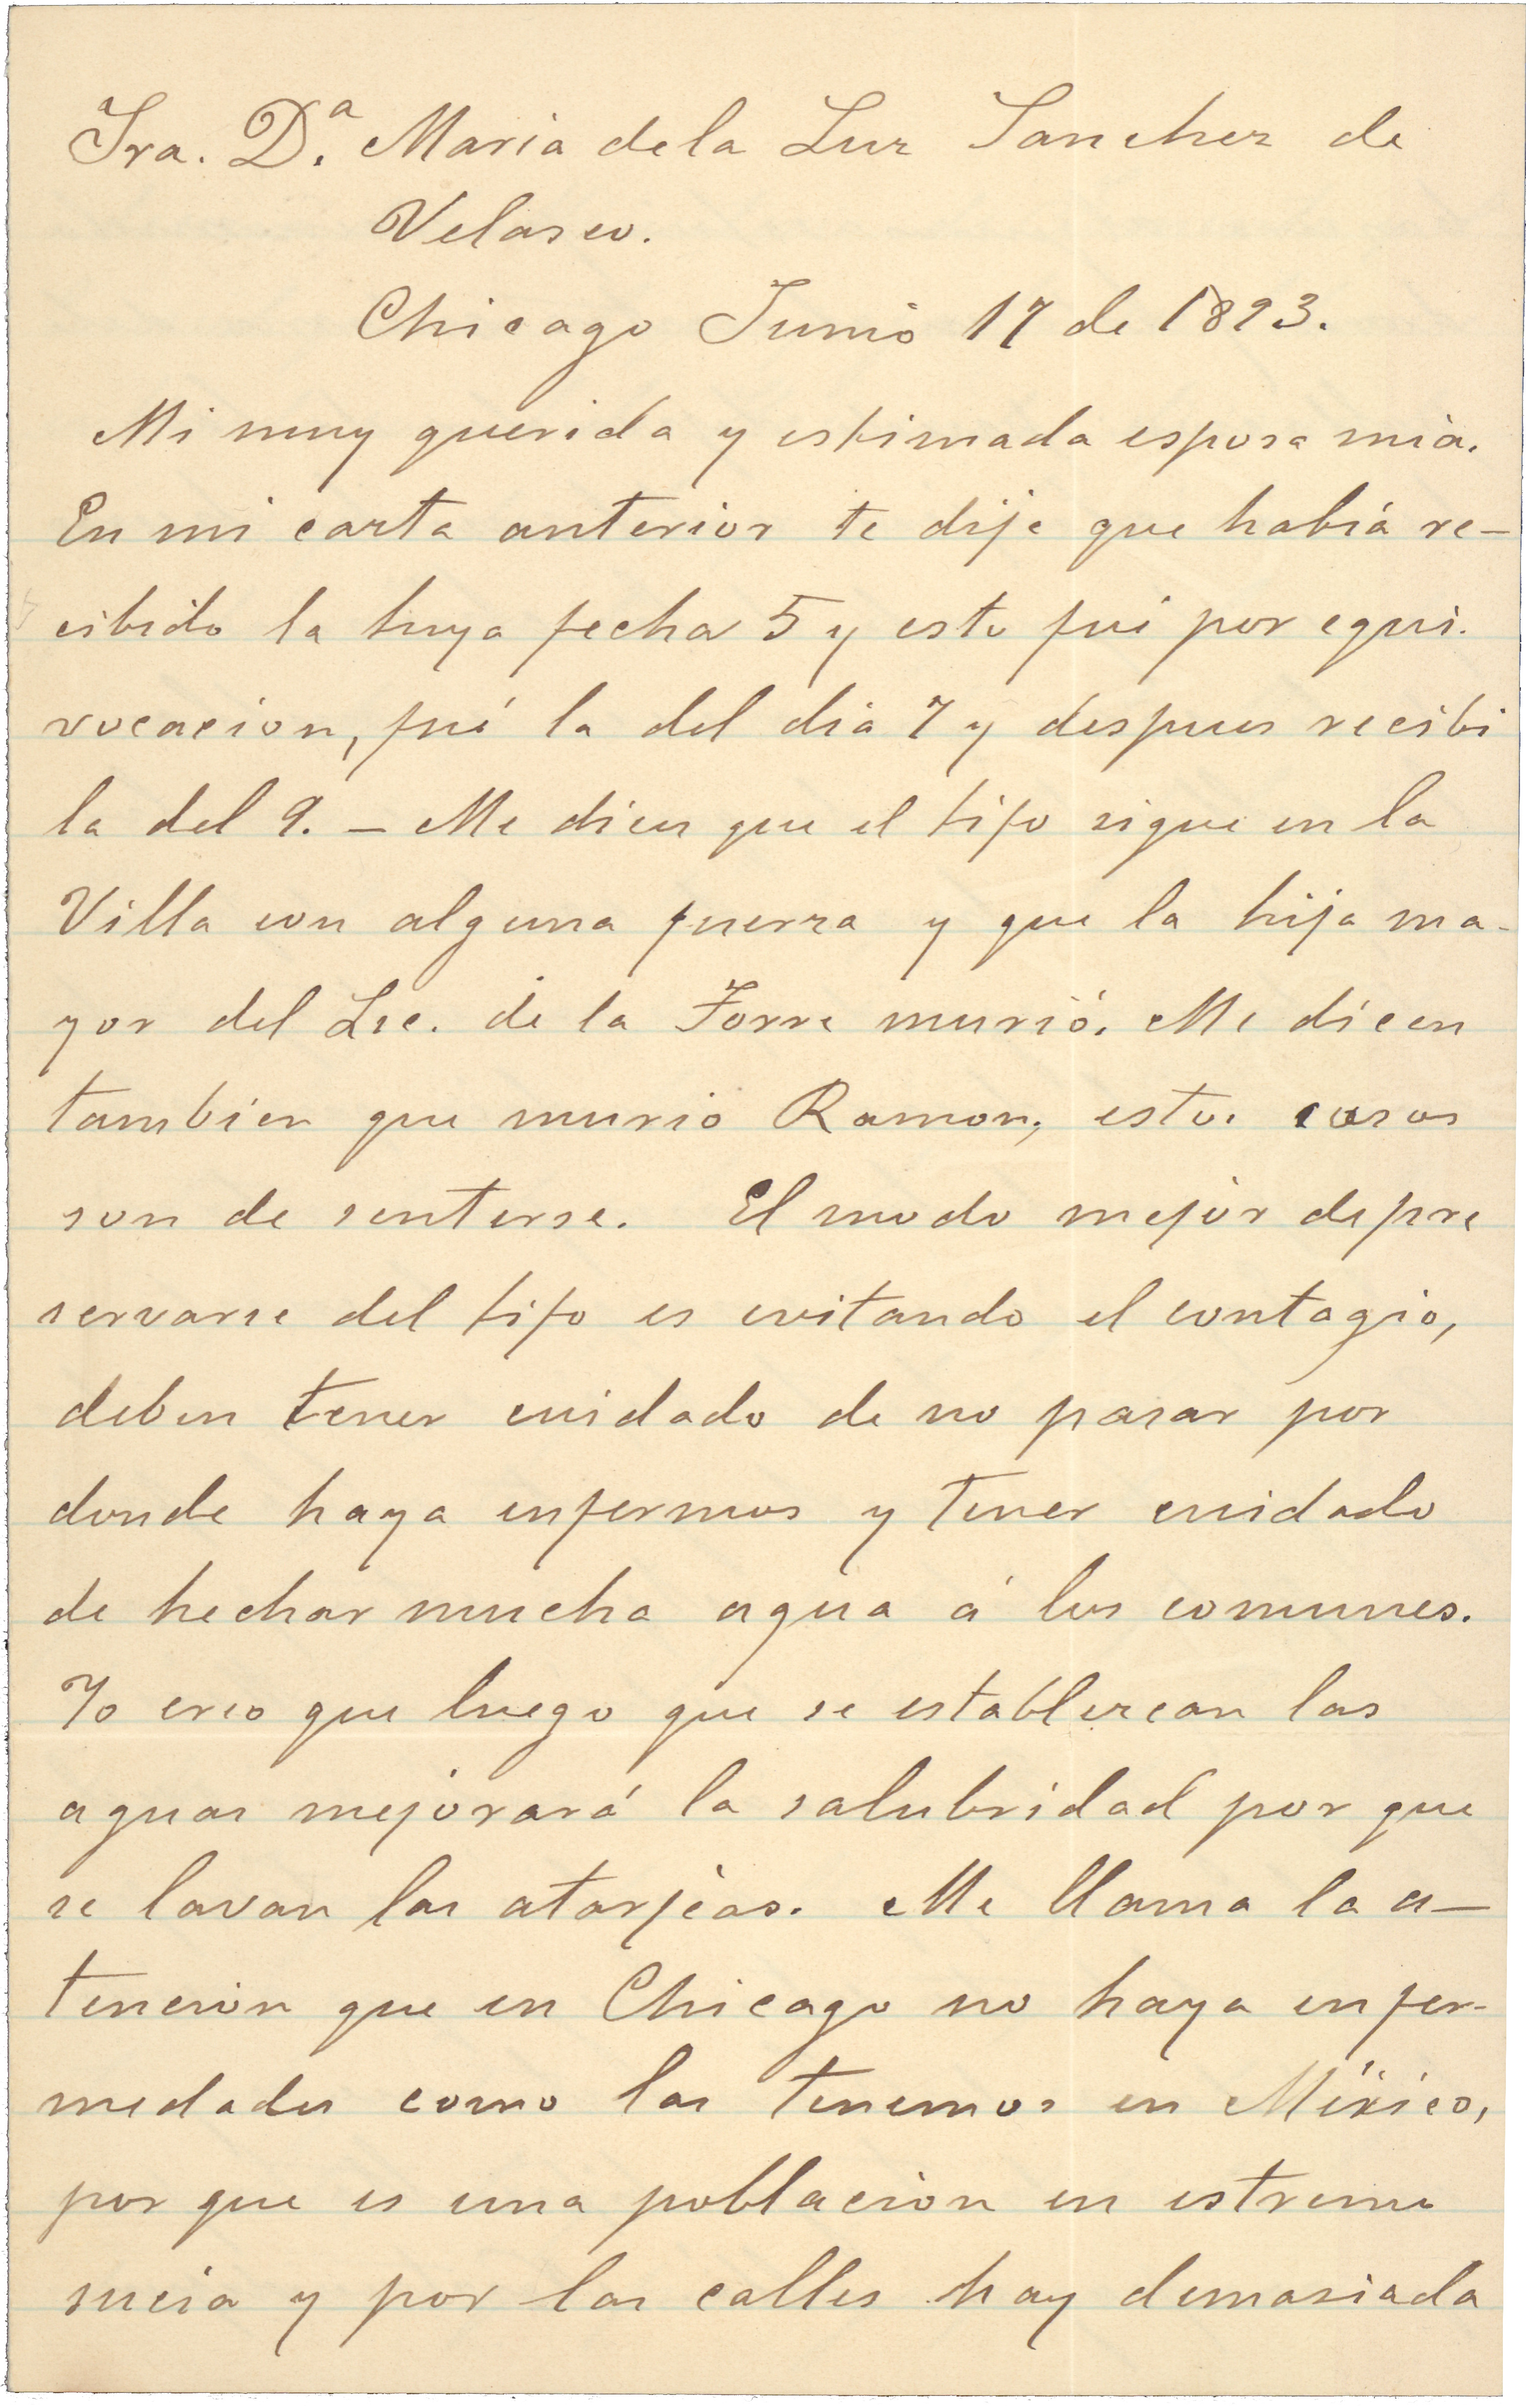 Sra. D.ª Maria de la Luz Sanchez de
Velasco.
Chicago Junio 17 de 1893.
Mi muy querida y estimada esposa mia.
En mi carta anterior te dije que habia re-
cibido la tuya fecha 5 y esto fué por equi-
vocacion, fué la del dia 7 y despues recibi
la del 9. — Me dices que el tifo sigue en la
Villa con alguna fuerza y que la hija ma-
yor del Lic. de la Torre murió. Me dicen
tambien que murió Ramon, estos casos
son de sentirse. El modo mejor de pre
servarse del tifo es evitando el contagio,
deben tener cuidado de no pasar por
donde haya enfermos y tener cuidado
de hechar mucha agua á los comunes.
Yo creo que luego que se establezcan las
aguas mejorará la salubridad por que
se lavan las atarjeas. Me llama la a-
tencion que en Chicago no haya enfer-
medades como las tenemos en México,
por que es una poblacion en estremo
sucia y por las calles hay demasiada